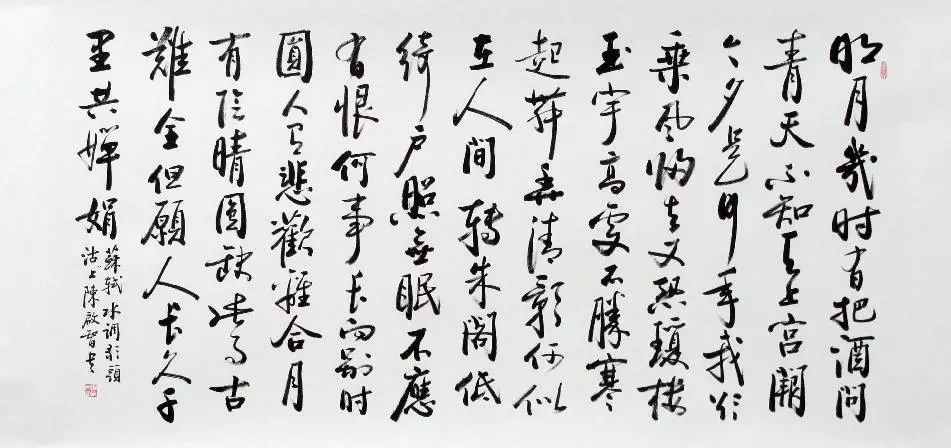 明月幾时有把酒问
青天不知天上宫闕
今夕是何年我欲
乘风归去又恐瓊楼
玉宇高处不勝寒
起舞弄清影何似
在人間转朱阁低
绮户照无眠不應
有恨何事长向别时
圓人有悲歡離合月
有阴晴圆缺此事古
難全但願人长久千
里共嬋娟
蘇轼水调歌頭
沽上陳啟智书